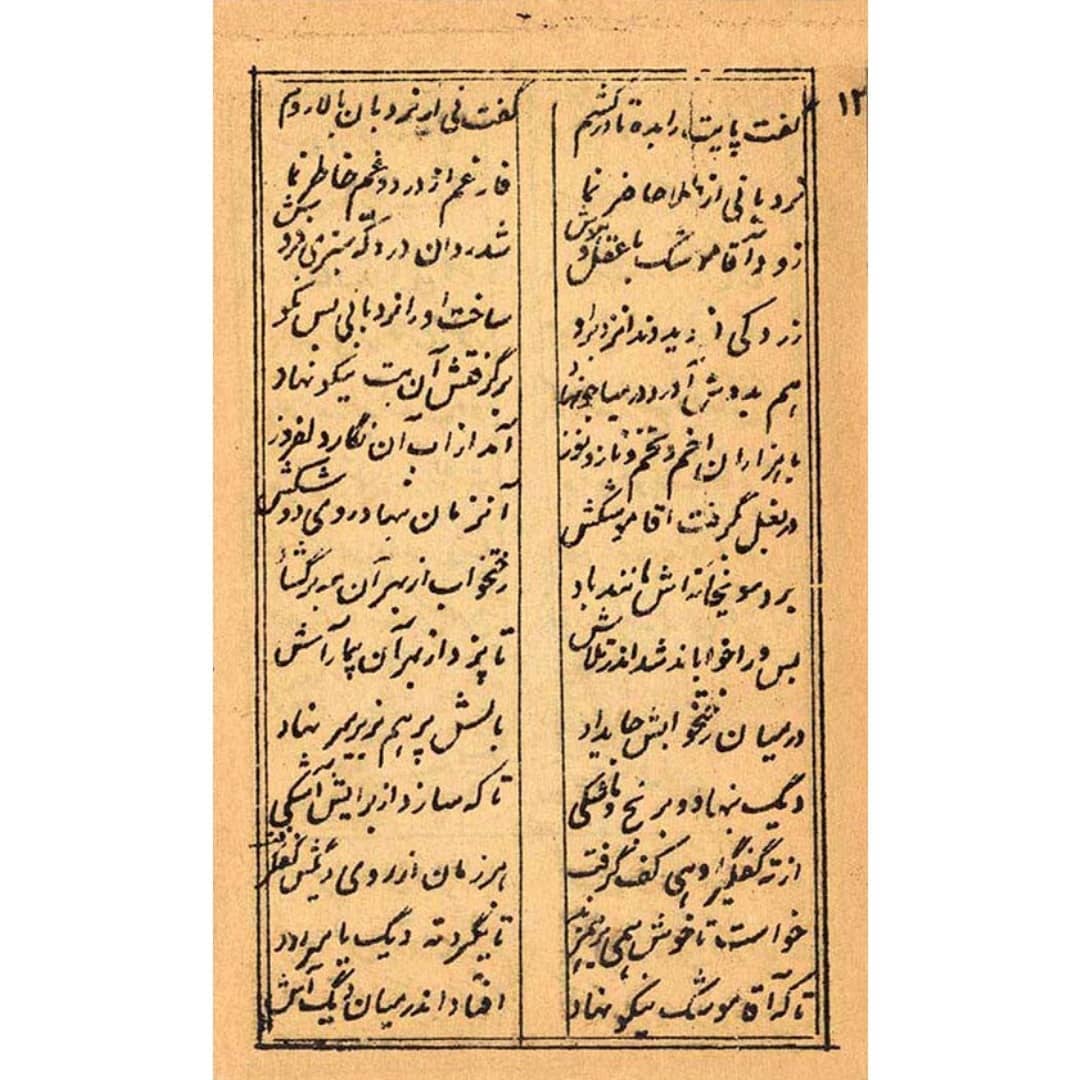 ۱۲
گفت پایت را بده تا در کشم
گفت نی از نردبان بالا روم
نردبانی از طلا حاضر نما
فارغم از درد و غم خاطر نما
زود آقا موشک با عقل و هوش
شد روان در دکه سبزی فروش
زردکی دزدید و دندانزد بر او
ساخت او را نردبانی بس نکو
هم بدوش آورد در میان چه نهاد
برگرفتش آن بت نیکو نهاد
با هزاران اخم و تخم و ناز و نوز
آمد از آب آن نگار دلفروز
در بغل بگرفت آقا موشکش
آنزمان بنهاد روی دوشکش
برد مونجانه اش مانند باد
رختخواب از بهر آن مه برگشاد
پس ورا خواباند شد اندر تلاش
تا پزد از بهر آن بیمار آش
در میان رختخوابش جا بداد
بالش پر هم بزیر سر نهاد
دیگ بنهاد و برنج و ماشکی
تا که سازد از برایش آشکی
از ته کفگیر او هی کف گرفت
هر زمان از روی دیگش کف گرفت
خواست تا خوش همی بر هم زند
تا نگیرد ته دیگ یا سر رود
تا که آقا موشک نیکو نهاد
افتاد اندر میان دیگ آش